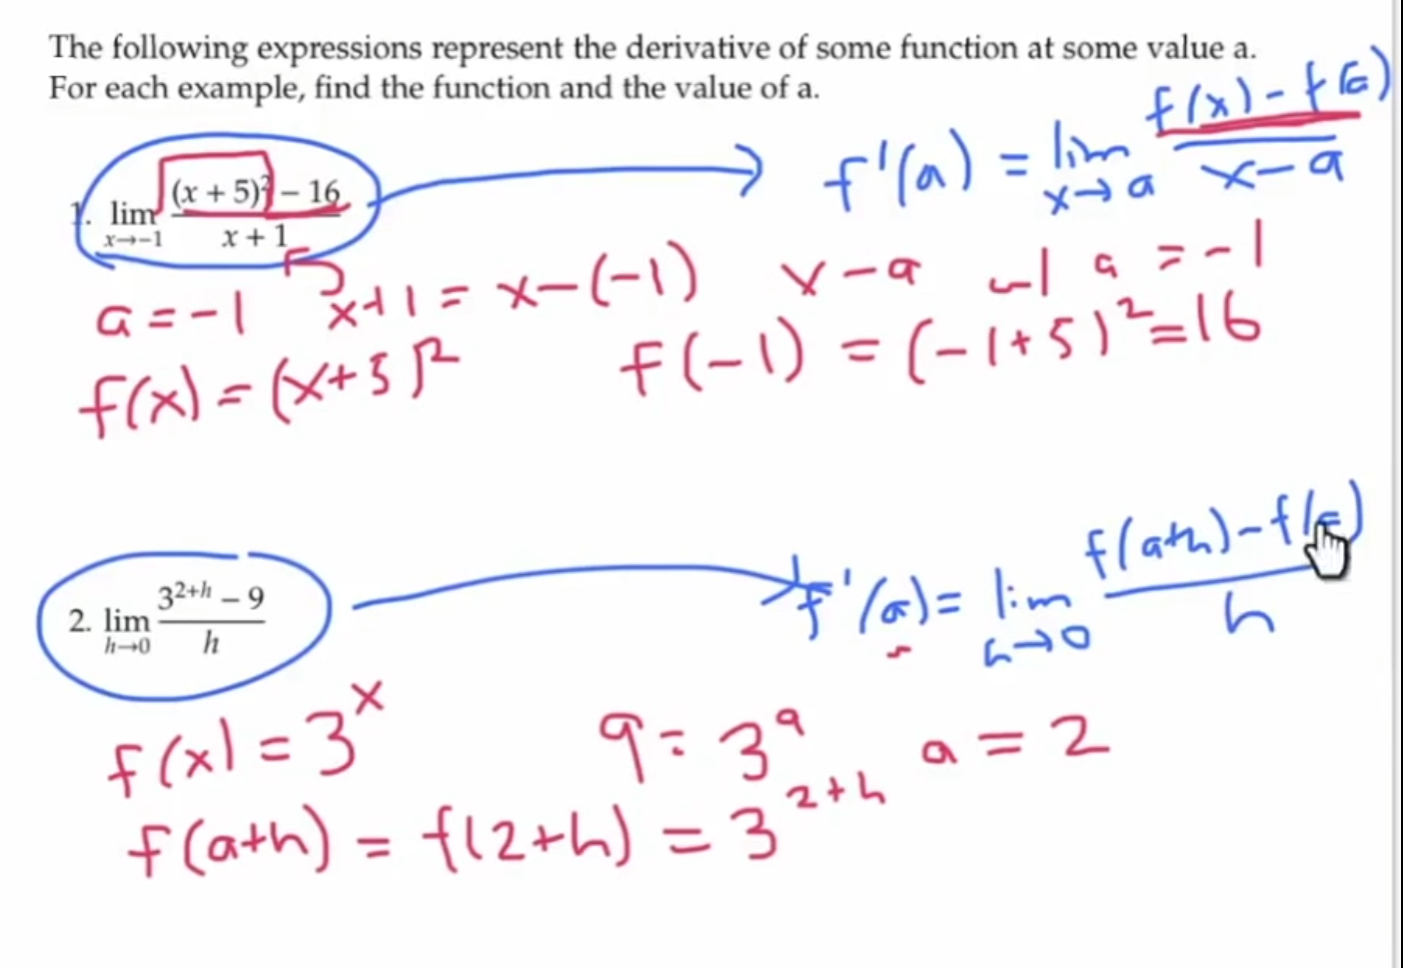 The following expressions represent the derivative of some function at some value a.
For each example, find the function and the value of a.
1. lim x→−1 ((x + 5)² − 16)/(x + 1)
f'(a) = lim x→a (f(x) − f(a))/(x − a)
a = −1 x+1 = x−(−1) x−a −1 a = −1
f(x) = (x+5)² f(−1) = (−1+5)² = 16
2. lim h→0 (3^(2+h) − 9)/h
f'(a) = lim h→0 (f(a+h) − f(a))/h
f(x) = 3^x 9 = 3^a a = 2
f(a+h) = f(2+h) = 3^(2+h)